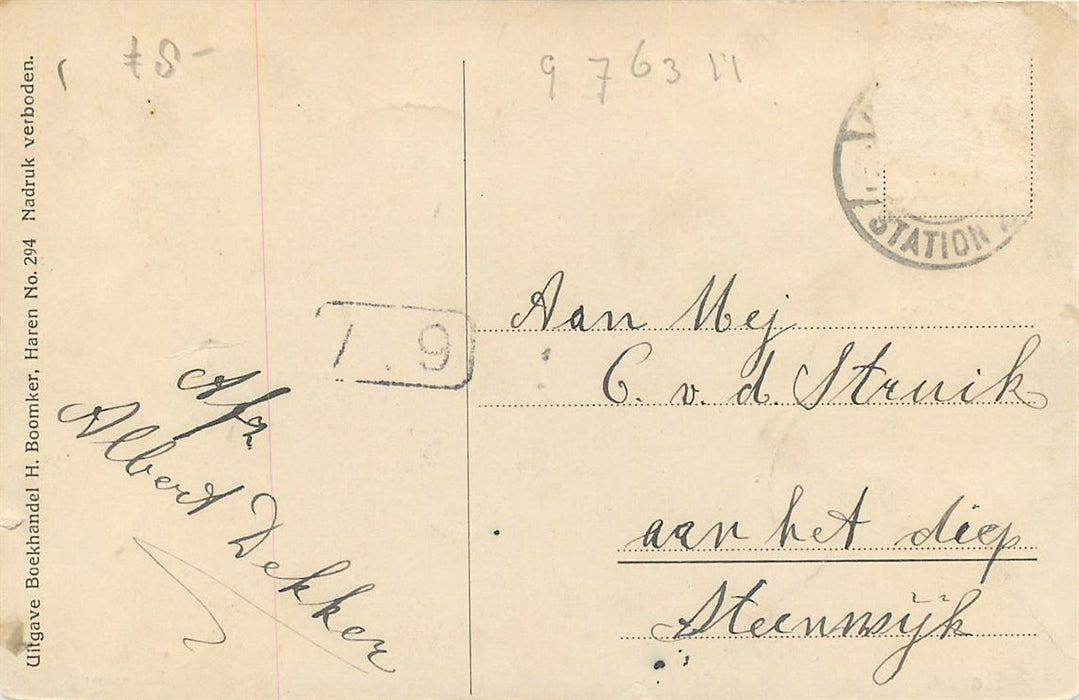 Uitgave Boekhandel H. Boomker, Haren No. 294 Nadruk verboden.
9 7 6 3
STATION
Aan Mej
C. v. d. Struik
aan het diep
Steenwijk
9
Afz
Albert Dekker